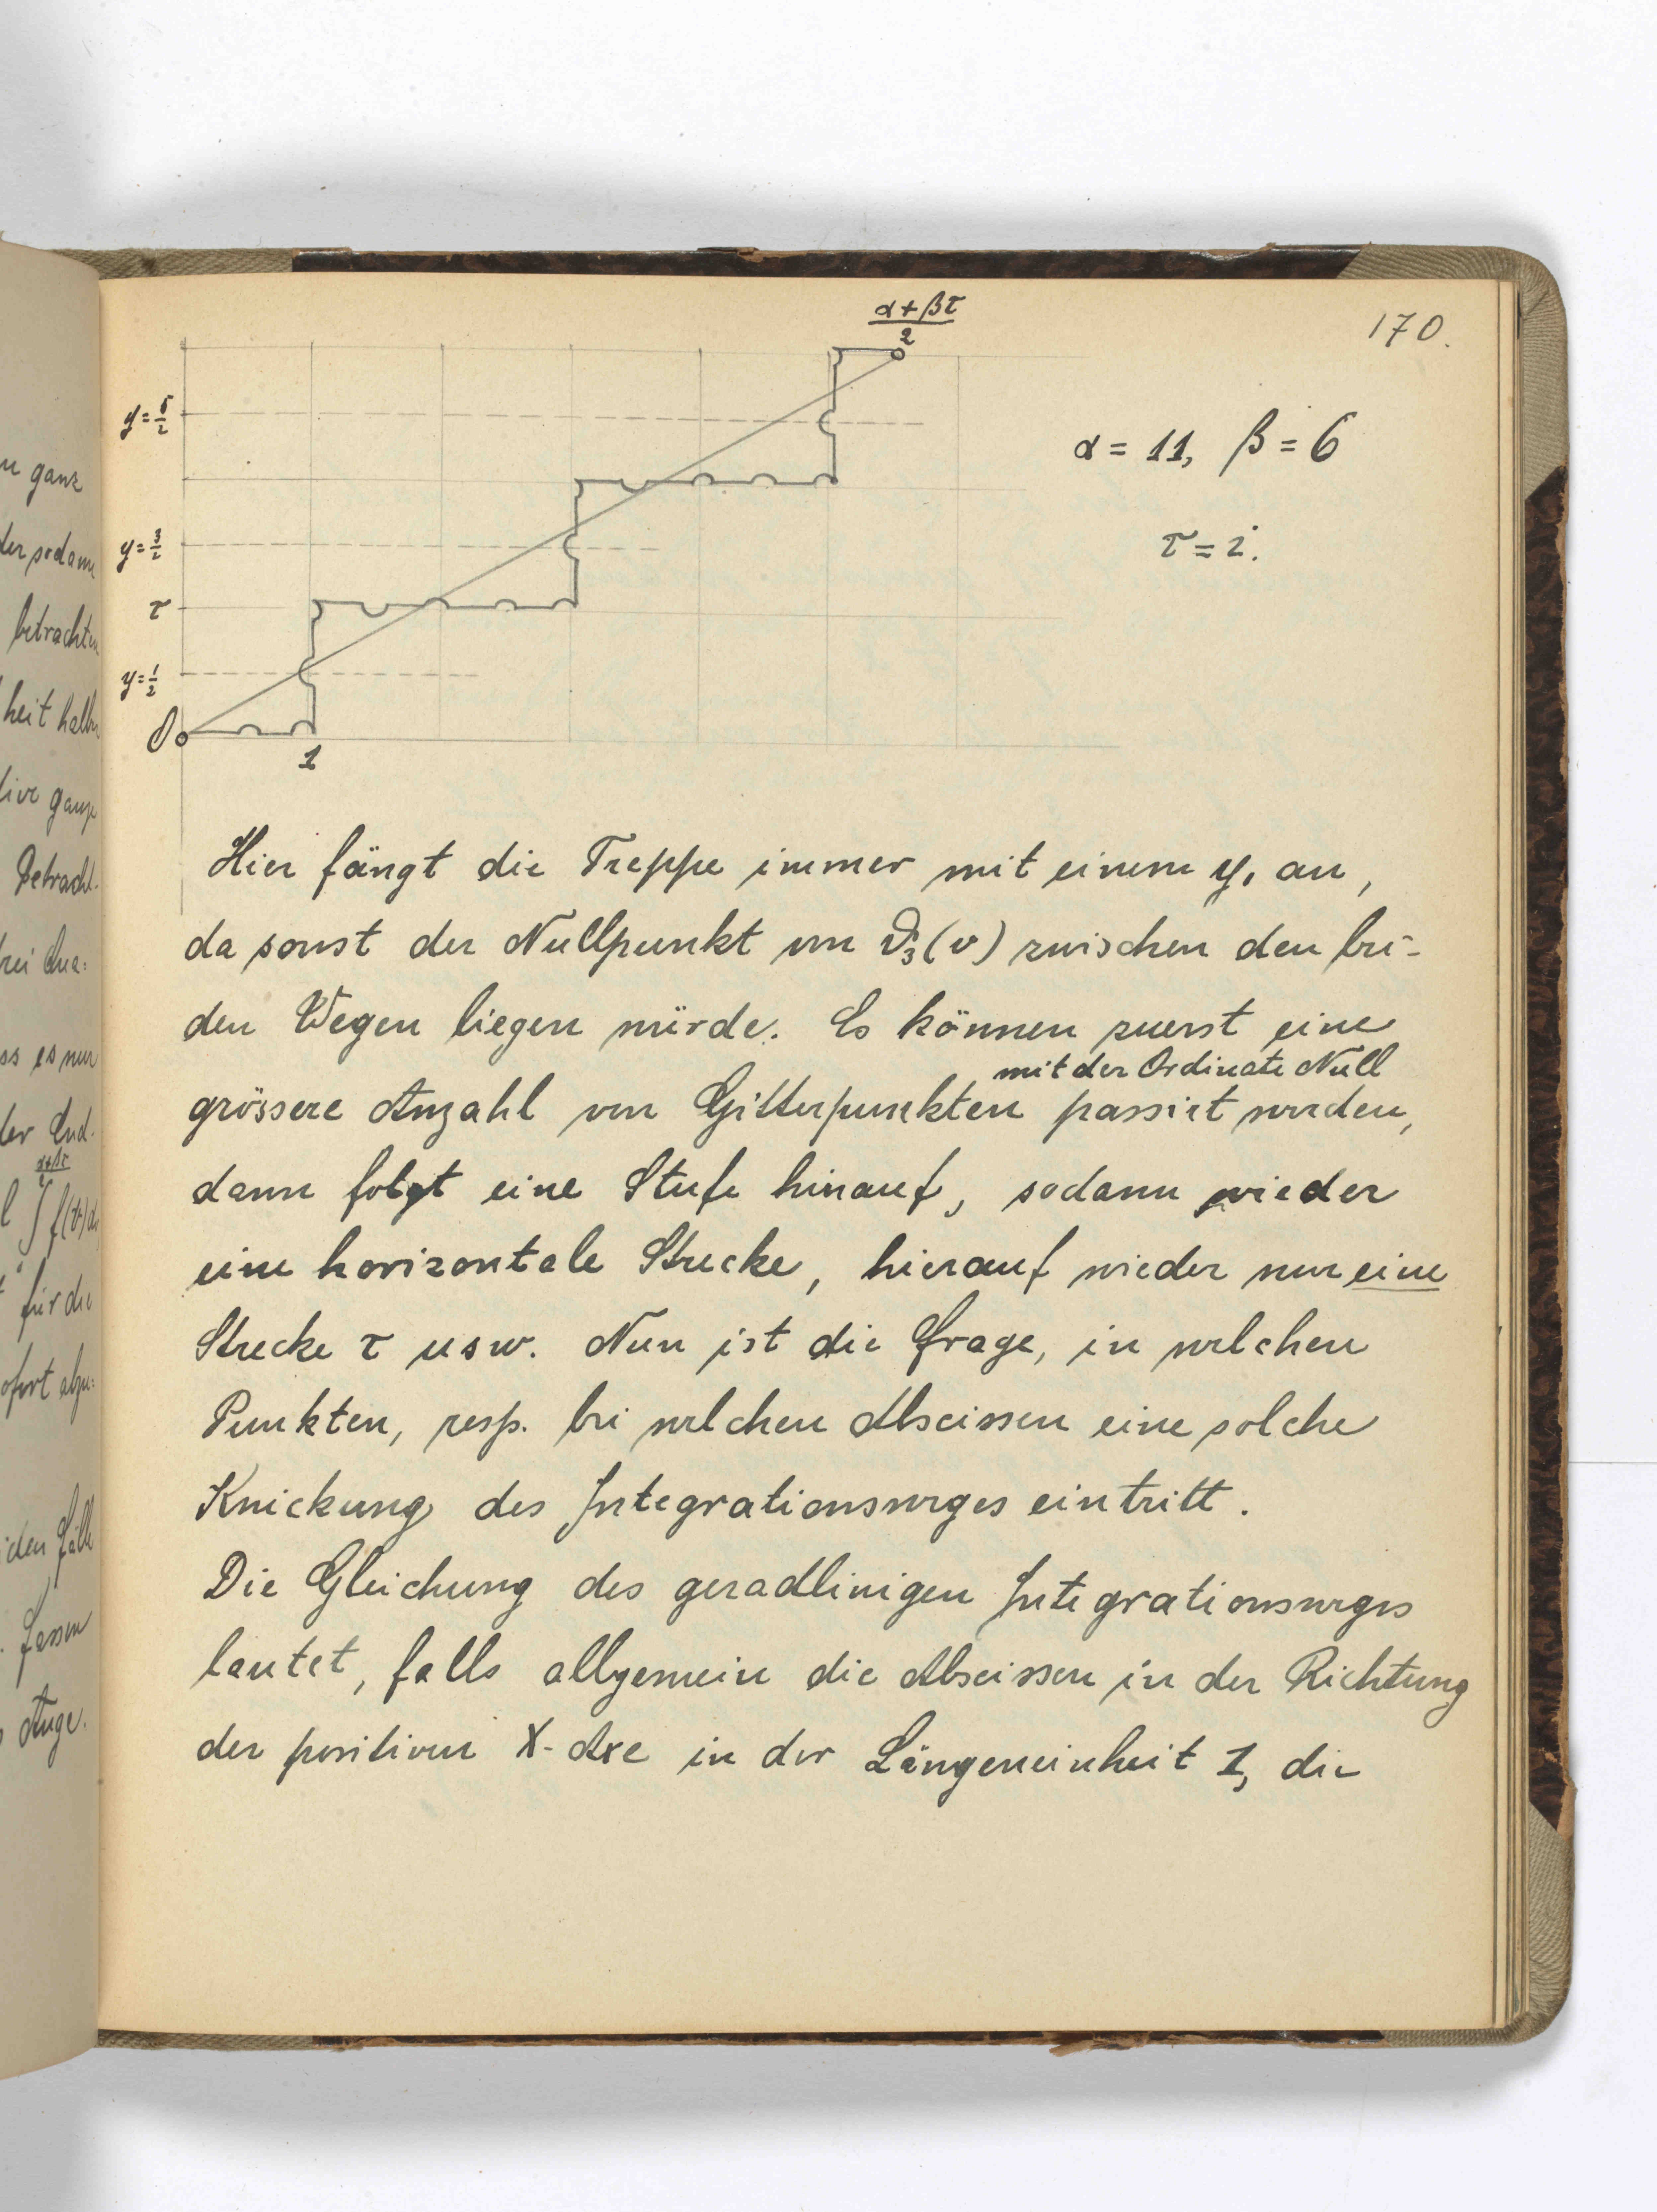 170.
α+βτ
2
y=5/2
α = 11, β = 6
y=3/2
τ = i.
τ
y=1/2
0
1
Hier fängt die Treppe immer mit einem y, an,
da sonst der Nullpunkt von ϑ₃(v) zwischen den bei-
den Wegen liegen würde. Es können zuerst eine
mit der Ordinate Null
grössere Anzahl von Gitterpunkten passirt werden,
dann folgt eine Stufe hinauf, sodann wieder
eine horizontale Strecke, hierauf wieder nur eine
Strecke τ usw. Nun ist die Frage, in welchen
Punkten, resp. bei welchen Abscissen eine solche
Knickung des Integrationsweges eintritt.
Die Gleichung des geradlinigen Integrationsweges
lautet, falls allgemein die Abscissen in der Richtung
der positiven X-Axe in der Längeneinheit 1, die
n ganz
der sodann
betrachten
heit halb
tive ganze
Betracht-
rei Qua=
ss es nur
der End-
α+βτ
l ∫ f(v)d
für die
ofort abzu=
iden Fälle
. Fassen
Auge.